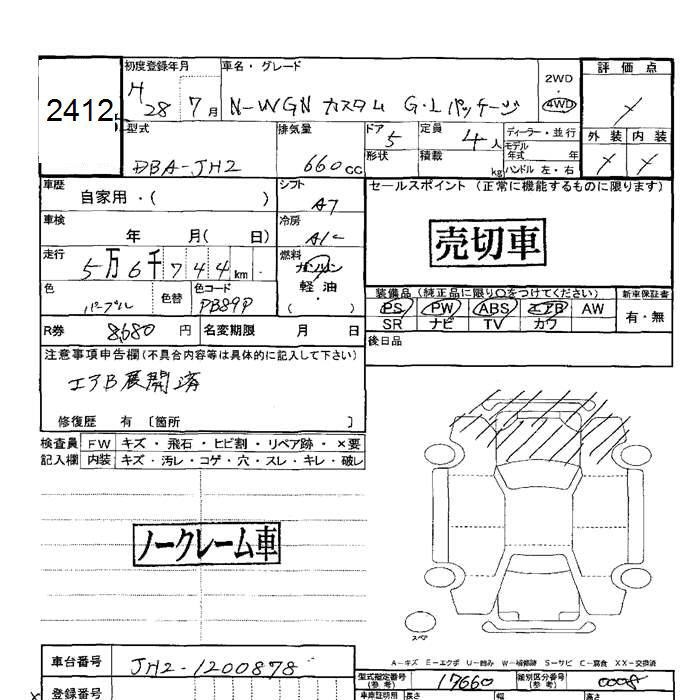 2412
初度登録年月 車名・グレード 2WD 評価点
H28 7月 N-WGN カスタム G・Lパッケージ 4WD
型式 排気量 ドア 5 定員 4人 ディーラー・並行 外装 内装
モデル年式 年
DBA-JH2 660cc 形状 積載 kg ハンドル 左・右
車歴 シフト セールスポイント(正常に機能するものに限ります)
自家用・( ) A7
車検 冷房
年 月( 日) 売切車
走行 燃料
5万6千744km ガソリン
軽油
色 色替 色コード ・ 装備品(純正品に限り○をつけてください) 新車保証書
パープル PB89P ( ) PS PW ABS エアB AW 有・無
SR ナビ TV カワ
R券 8,680円 名変期限 月 日
後日品
注意事項申告欄(不具合内容等は具体的に記入して下さい)
エアB展開済
修復歴 有 〔箇所 〕
検査員 FW キズ・飛石・ヒビ割・リペア跡・×要
記入欄 内装 キズ・汚レ・コゲ・穴・スレ・キレ・破レ
ノークレーム車
スペア
A-キズ E-エクボ U-凹み W-補修跡 S-サビ C-腐食 XX-交換済
車台番号 JH2-1200878 型式指定番号(参考) 17660 類別区分番号(参考) 0008
登録番号 車庫証明用 長さ 幅 高さ